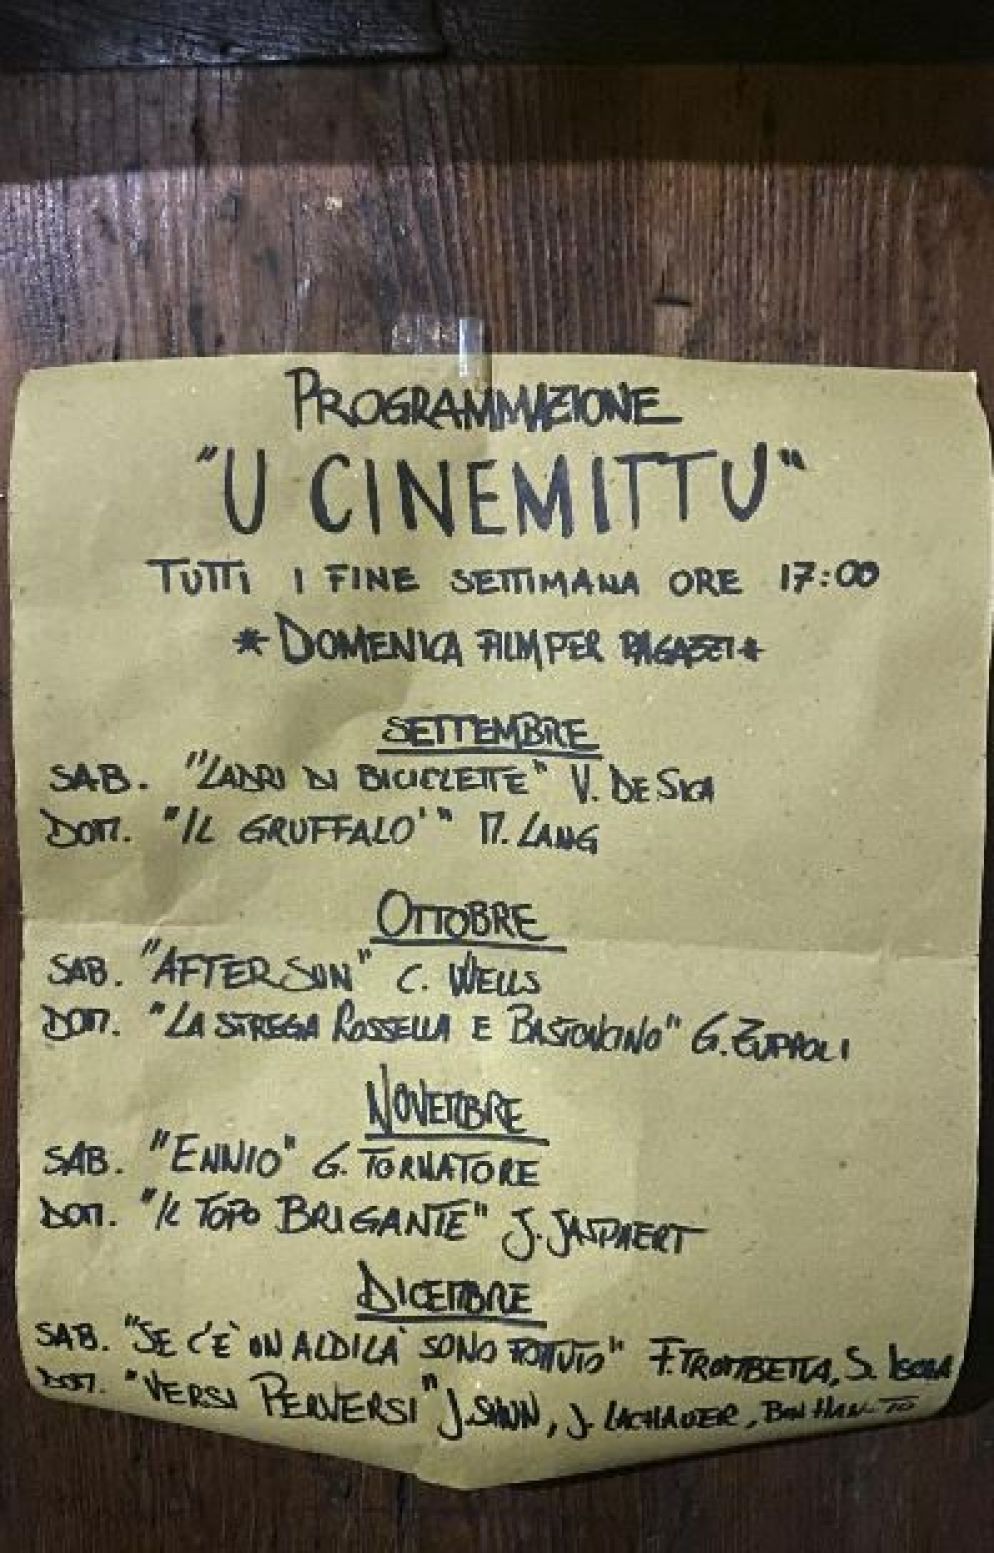 PROGRAMMAZIONE
"U CINEMITTU"
TUTTI I FINE SETTIMANA ORE 17:00
*DOMENICA FILM PER RAGAZZI*
SETTEMBRE
SAB. "LADRI DI BICICLETTE" V. DE SICA
DOM. "IL GRUFFALO'" M. LANG
OTTOBRE
SAB. "AFTERSUN" C. WELLS
DOM. "LA STREGA ROSSELLA E BASTONCINO" G.
NOVEMBRE
SAB. "ENNIO" G. TORNATORE
DOM. "IL TOPO BRIGANTE" J.
DICEMBRE
SAB. "SE C'È UN ALDILÀ SONO FOTTUTO" F. TROMBETTA, S. ISOLA
DOM. "VERSI PERVERSI" J. LACHAUER,